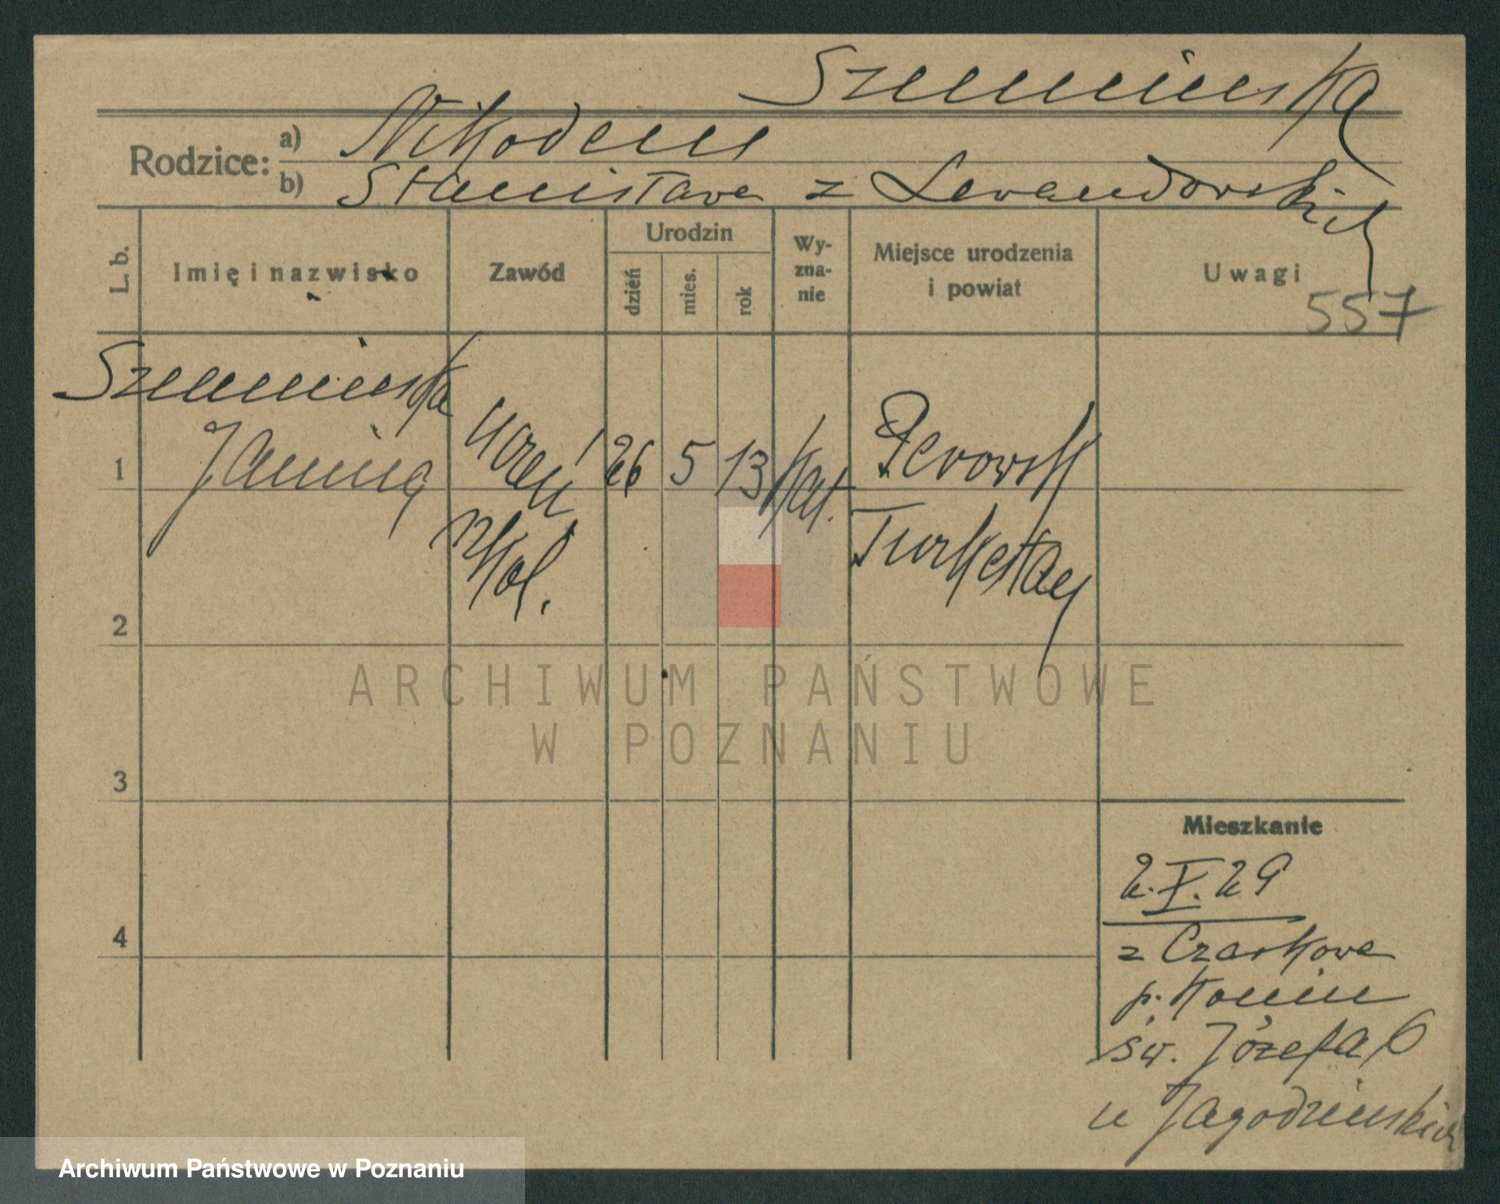 Szumińska
Rodzice:
a) Nikodem
b) Stanisława z Lewandowskich
L. b.
Imię i nazwisko
Zawód
Urodzin
dzień
mies.
rok
Wy-
zna-
nie
Miejsce urodzenia
i powiat
Uwagi
557
Szumińska
1 Janina
uczeń
szkol.
26 5 13 kat.
Perowsk
Turkestan
2
3
4
Mieszkanie
2.X.29
z Czarkowa
p. Konin
św. Józefa 6
u Jagodzińskich
ARCHIWUM PAŃSTWOWE
W POZNANIU
Archiwum Państwowe w Poznaniu